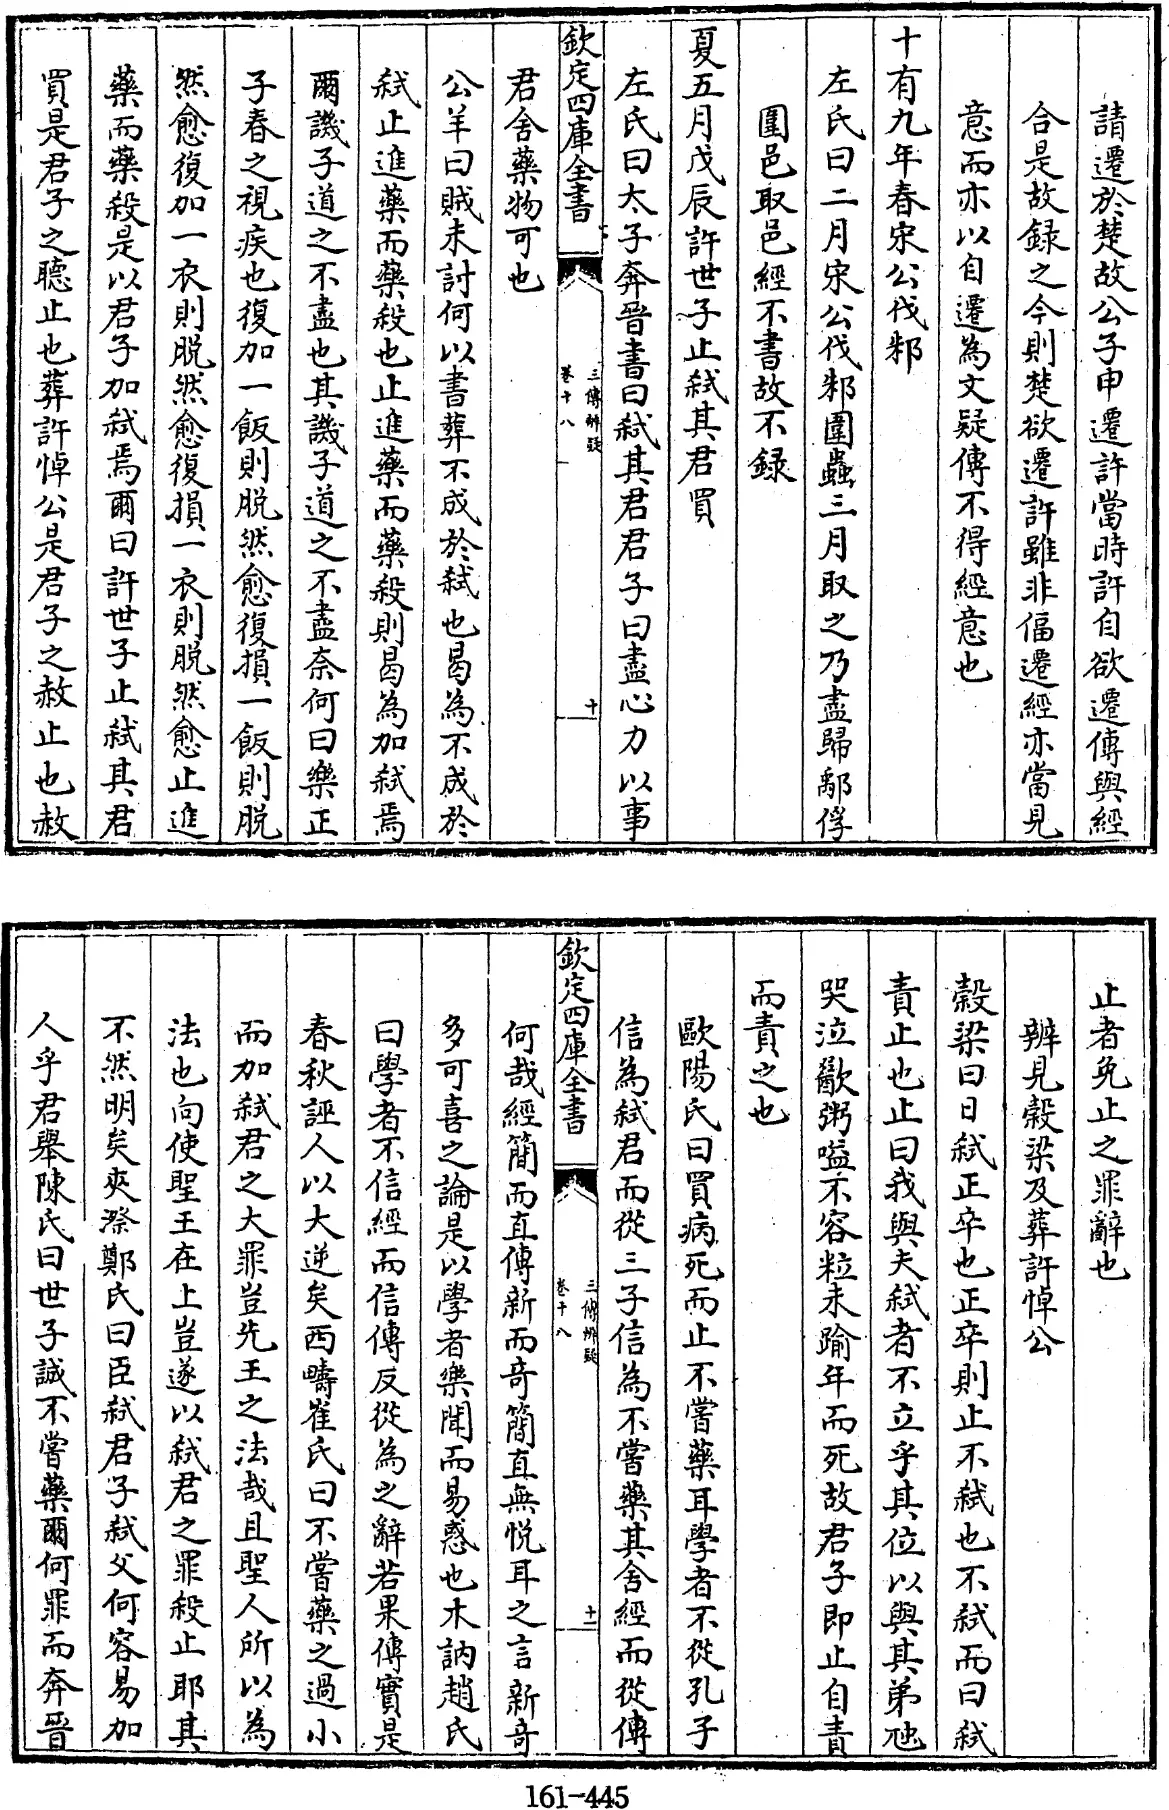 請遷於楚故公子申遷許當時許自欲遷傳與經
合是故録之今則楚欲遷許雖非偪遷經亦當見
意而亦以自遷為文疑傳不得經意也
十有九年春宋公伐邾
左氏曰二月宋公伐邾圍蟲三月取之乃盡歸鄅俘
圍邑取邑經不書故不録
夏五月戊辰許世子止弑其君買
左氏曰太子奔晉書曰弑其君君子曰盡心力以事
欽定四庫全書
三傳辨疑
卷十八
十
君舍藥物可也
公羊曰賊未討何以書葬不成於弑也曷為不成於
弑止進藥而藥殺也止進藥而藥殺則曷為加弑焉
爾譏子道之不盡也其譏子道之不盡奈何曰樂正
子春之視疾也復加一飯則脱然愈復損一飯則脱
然愈復加一衣則脱然愈復損一衣則脱然愈止進
藥而藥殺是以君子加弑焉爾曰許世子止弑其君
買是君子之聽止也葬許悼公是君子之赦止也赦
止者免止之罪辭也
辨見穀梁及葬許悼公
穀梁曰日弑正卒也正卒則止不弑也不弑而曰弑
責止也止曰我與夫弑者不立乎其位以與其弟虺
哭泣歠粥嗌不容粒未踰年而死故君子即止自責
而責之也
歐陽氏曰買病死而止不嘗藥耳學者不從孔子
信為弑君而從三子信為不嘗藥其舍經而從傳
欽定四庫全書
三傳辨疑
卷十八
十一
何哉經簡而直傳新而奇簡直無悦耳之言新奇
多可喜之論是以學者樂聞而易惑也木訥趙氏
曰學者不信經而信傳反從為之辭若果傳實是
春秋誣人以大逆矣西疇崔氏曰不嘗藥之過小
而加弑君之大罪豈先王之法哉且聖人所以為
法也向使聖王在上豈遂以弑君之罪殺止耶其
不然明矣夾漈鄭氏曰臣弑君子弑父何容易加
人乎君舉陳氏曰世子誠不嘗藥爾何罪而奔晉
161-445